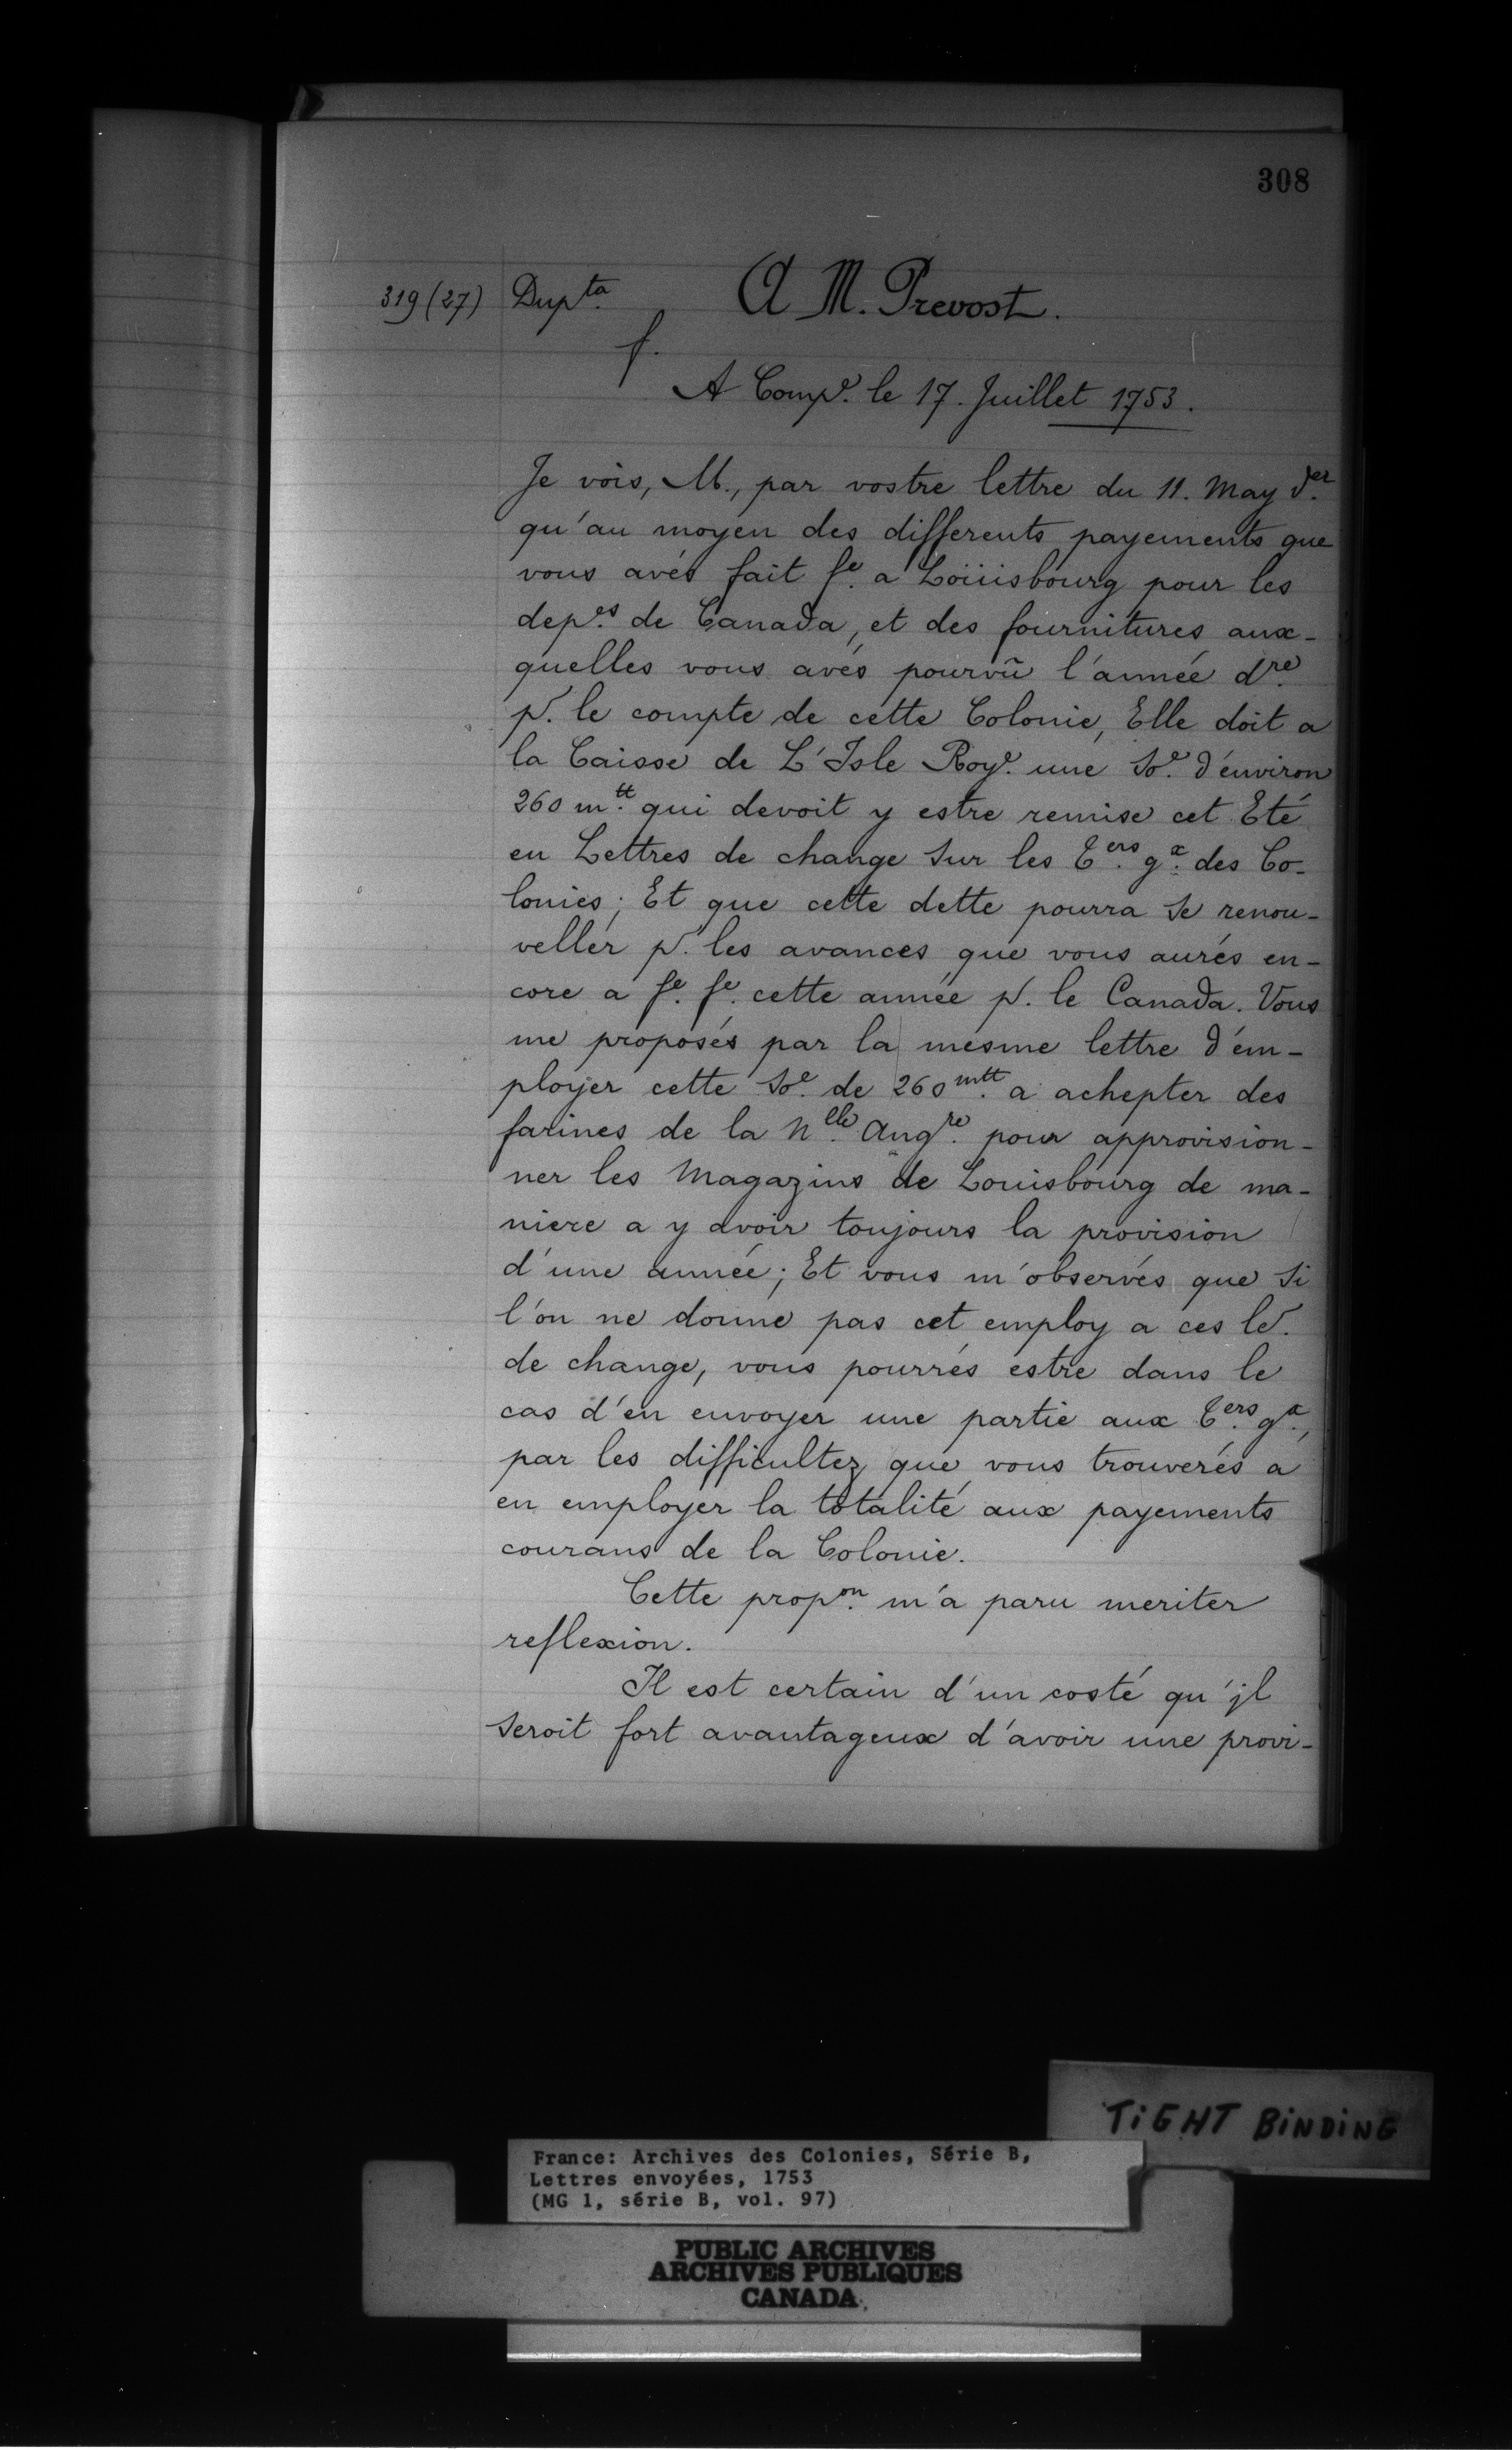 308
319 (27) Dupta. A M. Prevost.
f.
A Compe. le 17. Juillet 1753.
Je vois, M., par vostre lettre du 11. May der.
qu'au moyen des differents payements que
vous avés fait fe. a Loüisbourg pour les
depes. de Canada, et des fournitures aux-
quelles vous avés pourvû l'année dre.
p. le compte de cette Colonie, Elle doit a
la Caisse de L'Isle Roye. une soe. d'environ
260 mtt. qui devoit y estre remise cet Eté
en Lettres de change sur les Ters. gx. des Co-
lonies; Et que cette dette pourra se renou-
veller p. les avances que vous aurés en-
core a fe. fe. cette année p. le Canada. Vous
me proposés par la mesme lettre d'em-
ployer cette soe. de 260 mtt. a achepter des
farines de la Nlle. Angre. pour approvision-
ner les Magazins de Louisbourg de ma-
niere a y avoir toujours la provision
d'une année; Et vous m'observés que si
l'on ne donne pas cet employ a ces le.
de change, vous pourrés estre dans le
cas d'en envoyer une partie aux Ters. gx.,
par les difficultez que vous trouverés a
en employer la totalité aux payements
courans de la Colonie.
Cette propon. m'a paru meriter
reflexion.
Il est certain d'un costé qu'jl
seroit fort avantageux d'avoir une provi-
TIGHT BINDING
France: Archives des Colonies, Série B,
Lettres envoyées, 1753
(MG 1, série B, vol. 97)
PUBLIC ARCHIVES
ARCHIVES PUBLIQUES
CANADA